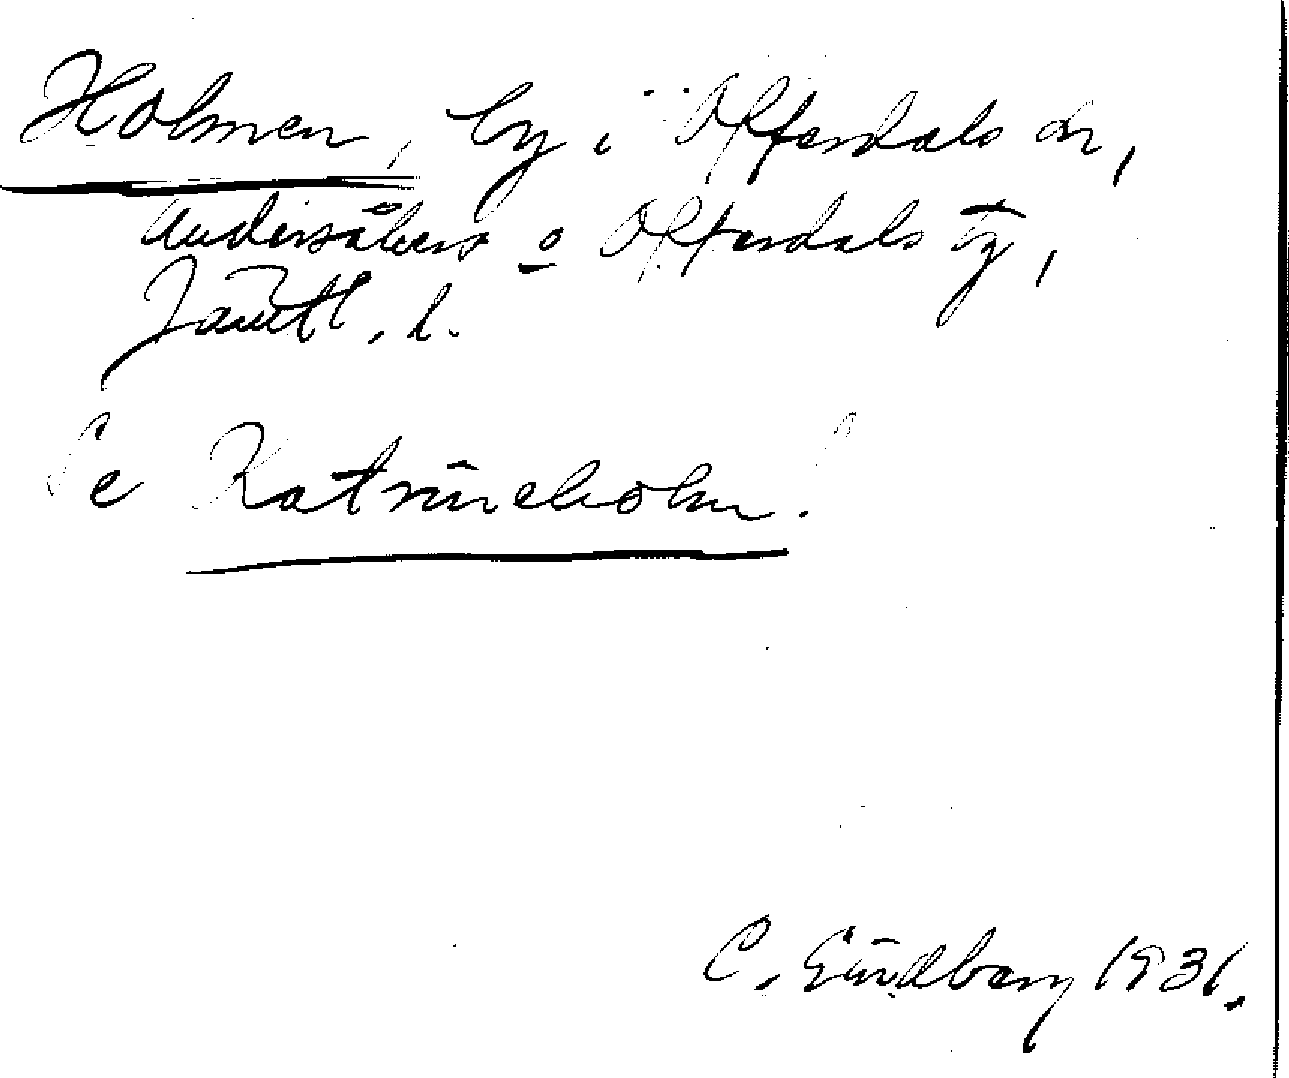 Holmen, by i Offerdals sn,
Undersåkers o Offerdals tg,
Jämtl. l.
Se Katrineholm!
C. Lindberg 1931.